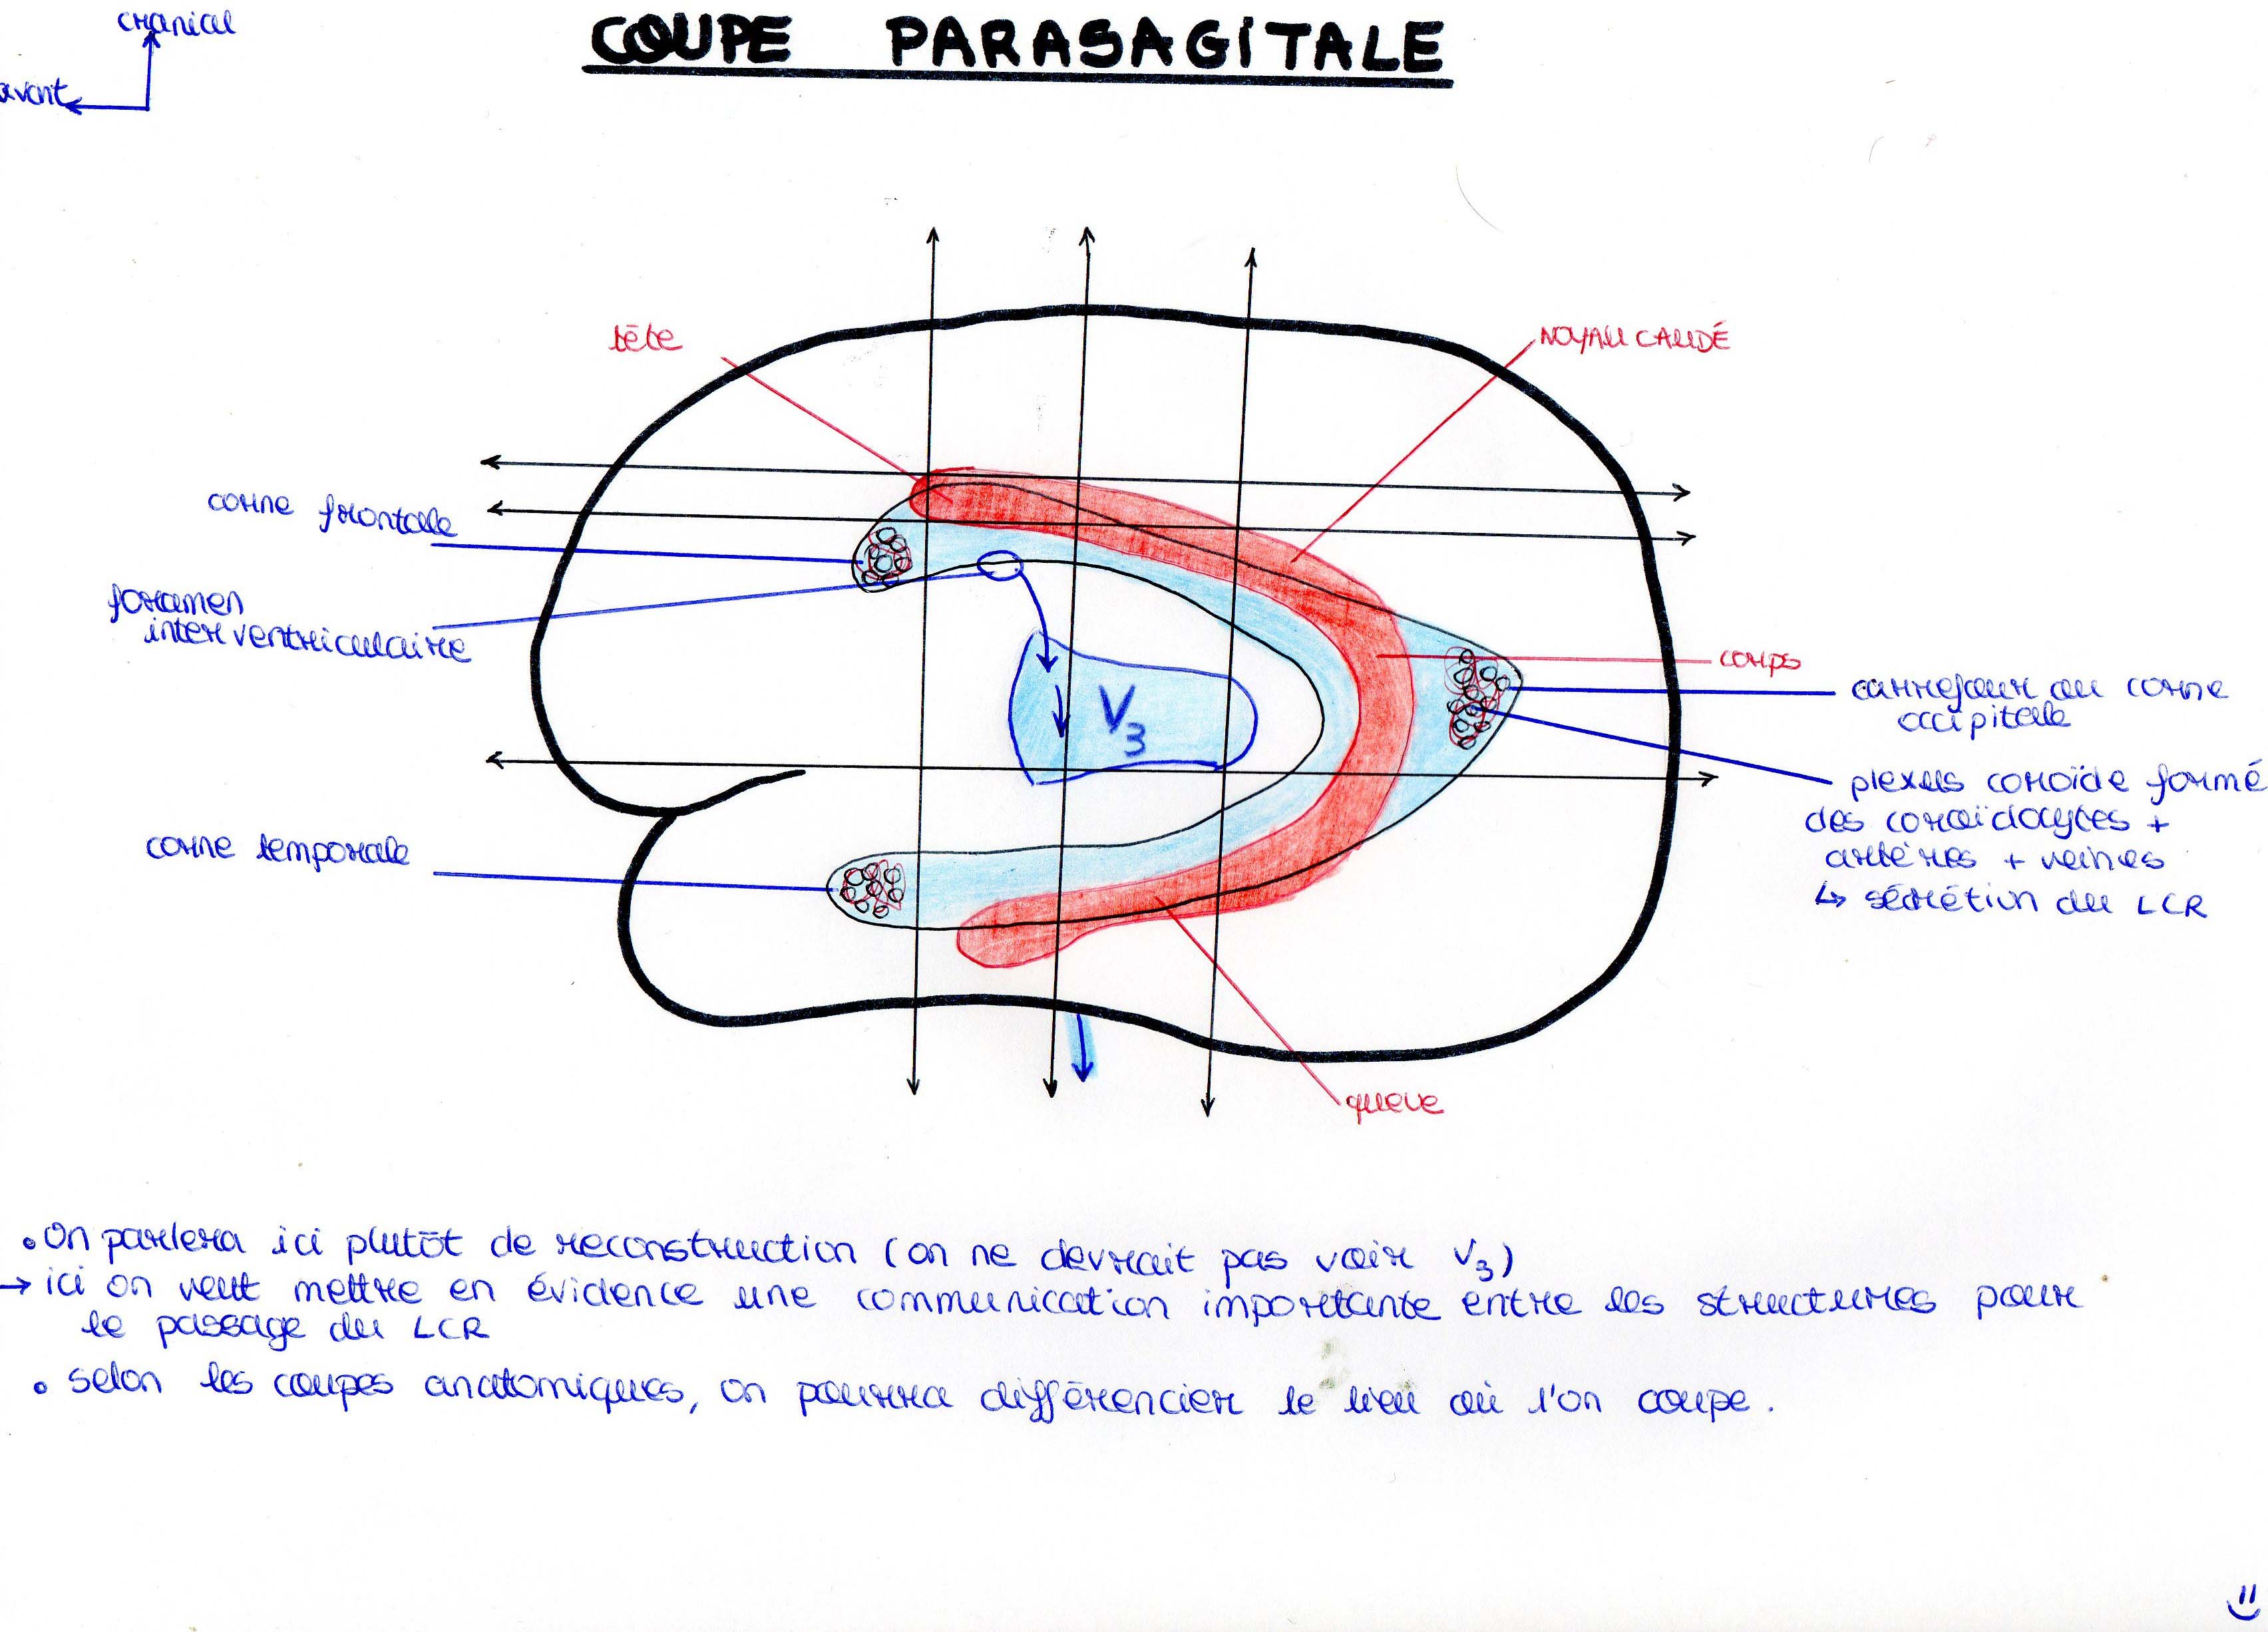 COUPE PARASAGITALE
cranial
avant
tête
NOYAU CAUDÉ
corne frontale
foramen
interventriculaire
V3
corps
carrefour ou corne
occipitale
plexus coroïde formé
des coroïdocytes +
artères + veines
↳ sécrétion du LCR
corne temporale
queue
• On parlera ici plutôt de reconstruction (on ne devrait pas voir V3)
→ ici on veut mettre en évidence une communication importante entre les structures pour
le passage du LCR
• selon les coupes anatomiques, on pourra différencier le lieu où l'on coupe.